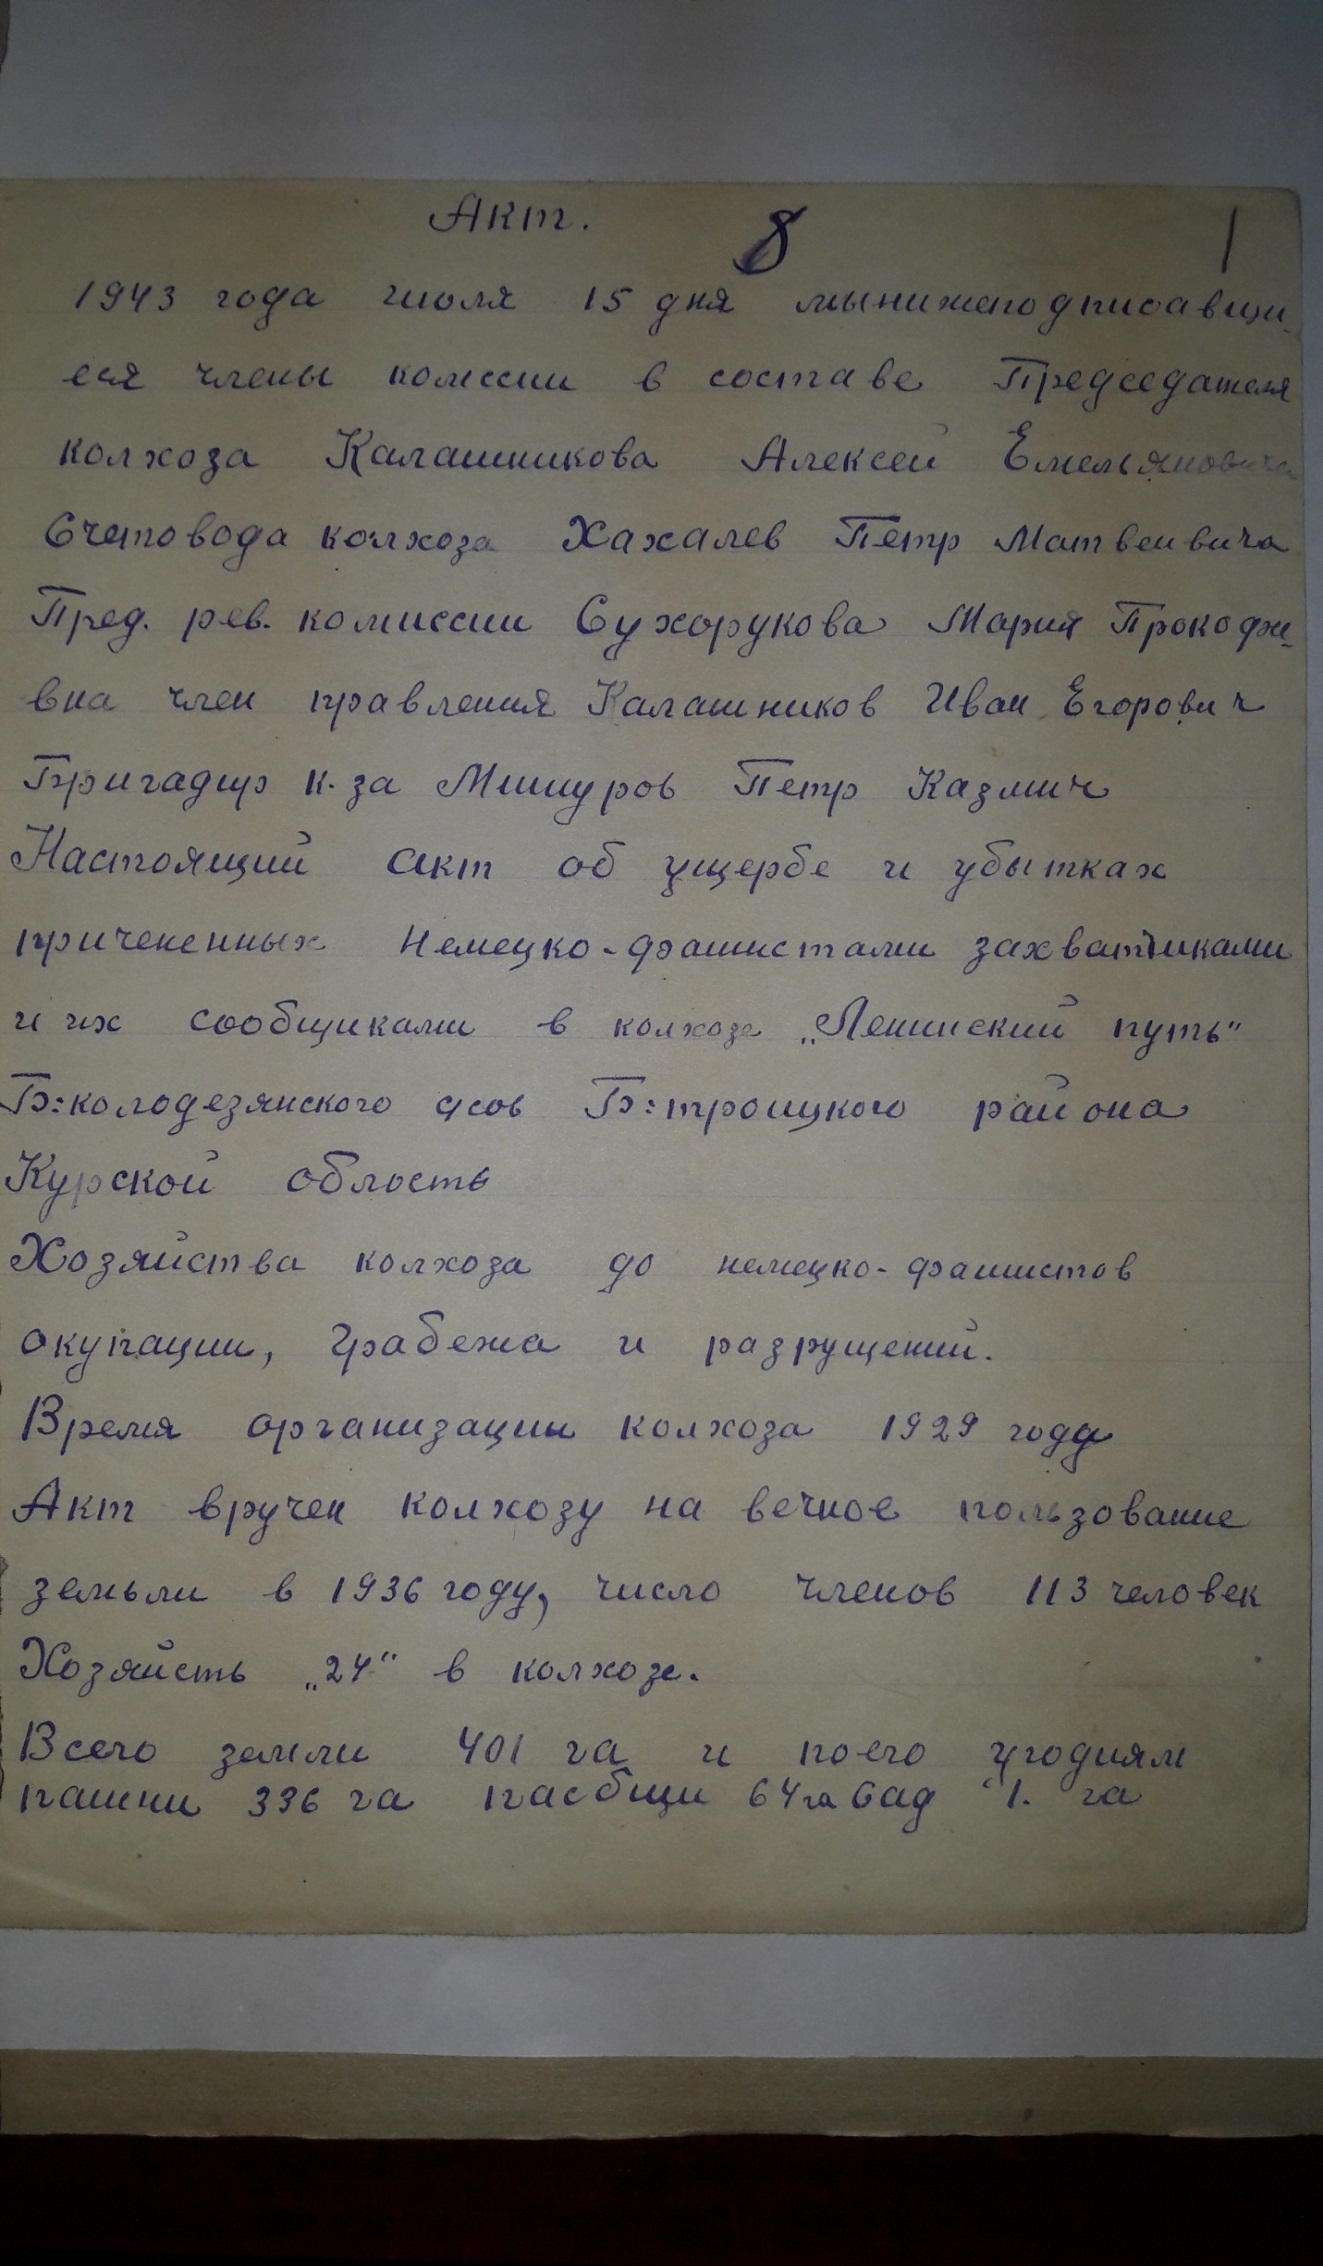 Акт.
8
1
1943 года июля 15 дня мы нижеподписавщи-
еся члены комссии в составе Председателя
колхоза Калашникова Алексей Емельяновича
Счетовода колхоза Хахалев Петр Матвеивича
Пред. рев. комиссии Сухорукова Мария Прокофие-
вна член правления Калашников Иван Егорович
Бригадир к-за Мишуров Петр Казмич
Настоящий акт об ущербе и убытках
причененных немецко-фашистами захватчиками
и их сообщиками в колхозе „Ленинский путь"
Б:колодезянского с/сов Б:троицкого района
Курской область
Хозяйства колхоза до немецко-фашистов
окупации, грабежа и разрущений.
Время организации колхоза 1929 года
Акт вручен колхозу на вечное пользование
земьли в 1936 году, число членов 113 человек
Хозяйсть „24" в колхозе.
Всего земли 401 га и по его угодиям
пашни 336 га пасбищи 64 га Сад 1. га